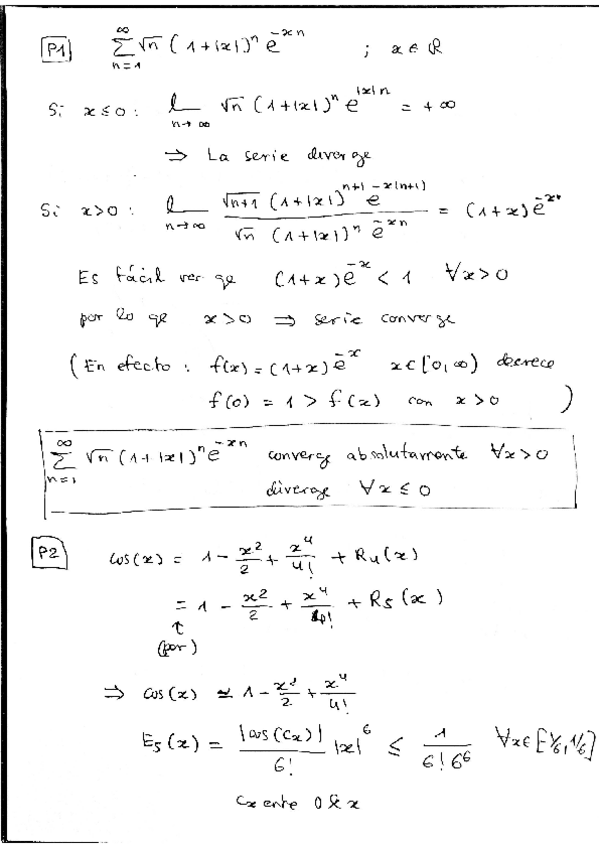 P1 ∑_{n=1}^{∞} √n (1+|x|)^n e^{-xn} ; x ∈ ℝ
Si x ≤ 0 : l_{n→∞} √n (1+|x|)^n e^{|x|n} = +∞
⇒ La serie diverge
Si x>0 : l_{n→∞} \frac{√{n+1} (1+|x|)^{n+1} e^{-x(n+1)}}{√n (1+|x|)^n e^{-xn}} = (1+x) e^{-x}
Es fácil ver qe (1+x) e^{-x} < 1 ∀x>0
por lo qe x>0 ⇒ serie converge
(En efecto : f(x) = (1+x) e^{-x} x ∈ [0,∞) decrece
f(0) = 1 > f(x) con x>0 )
∑_{n=1}^{∞} √n (1+|x|)^n e^{-xn} converge absolutamente ∀x>0
diverge ∀x ≤ 0
P2 cos(x) = 1 - \frac{x^2}{2} + \frac{x^4}{4!} + R_4(x)
= 1 - \frac{x^2}{2} + \frac{x^4}{4!} + R_5(x)
↑
(par)
⇒ cos(x) ≃ 1 - \frac{x^2}{2} + \frac{x^4}{4!}
E_5(x) = \frac{|cos(c_x)|}{6!} |x|^6 ≤ \frac{1}{6! 6^6} ∀x∈[-1/6, 1/6]
c_x entre 0 & x